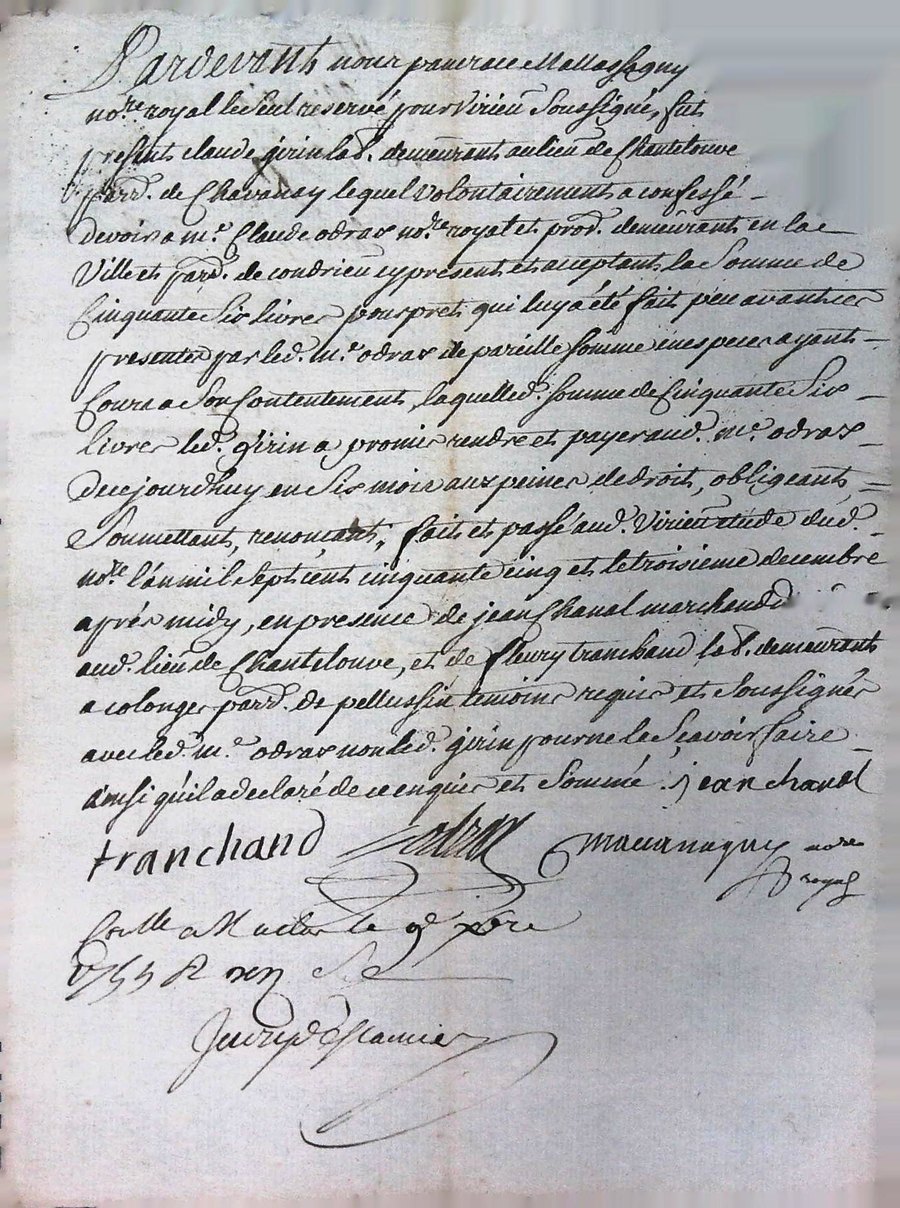 Pardevant nous pancrace Mallassagny
no.re royal le Seul reservé pour Virieu Soussigné, fut
present claude girin lab.r demeurant au lieu de Chantelouve
parr.e de Chavanay lequel Volontairement a confessé -
Devoir a m.e Claude odras no.re royal et proc.r demeurant en la
Ville et parr.e de condrieu cy present et acceptant la Somme de
Cinquante Six livres pour pret qui luy a été fait peu avant ces
presentes par led. m.e odras de pareille somme en especes ayant -
Cours a Son Contentement, laquelled. somme de Cinquante Six -
livres led. girin a promis rendre et payer aud. m.e odras -
De ce jourdhuy en Six mois aux peines de droit, obligeant, =
Soumettant, renonçant, fait et passé aud. Virieu etude dud.
no.re l'an mil Sept cent cinquante cinq et le troisieme decembre
après midy, en presence de jean Chaval marchand
aud. lieu de Chantelouve, et de fleury tranchand lab.r demeurant
a colonges parr.e de pellussin temoins requis et Soussignés
avec led. m.e odras non led. girin pour ne le Sçavoir faire -
ainsi qu'il a declaré de ce enquis et Sommé. jean chaval
tranchand odras no.re
royal
le 9e xbre
1755 R